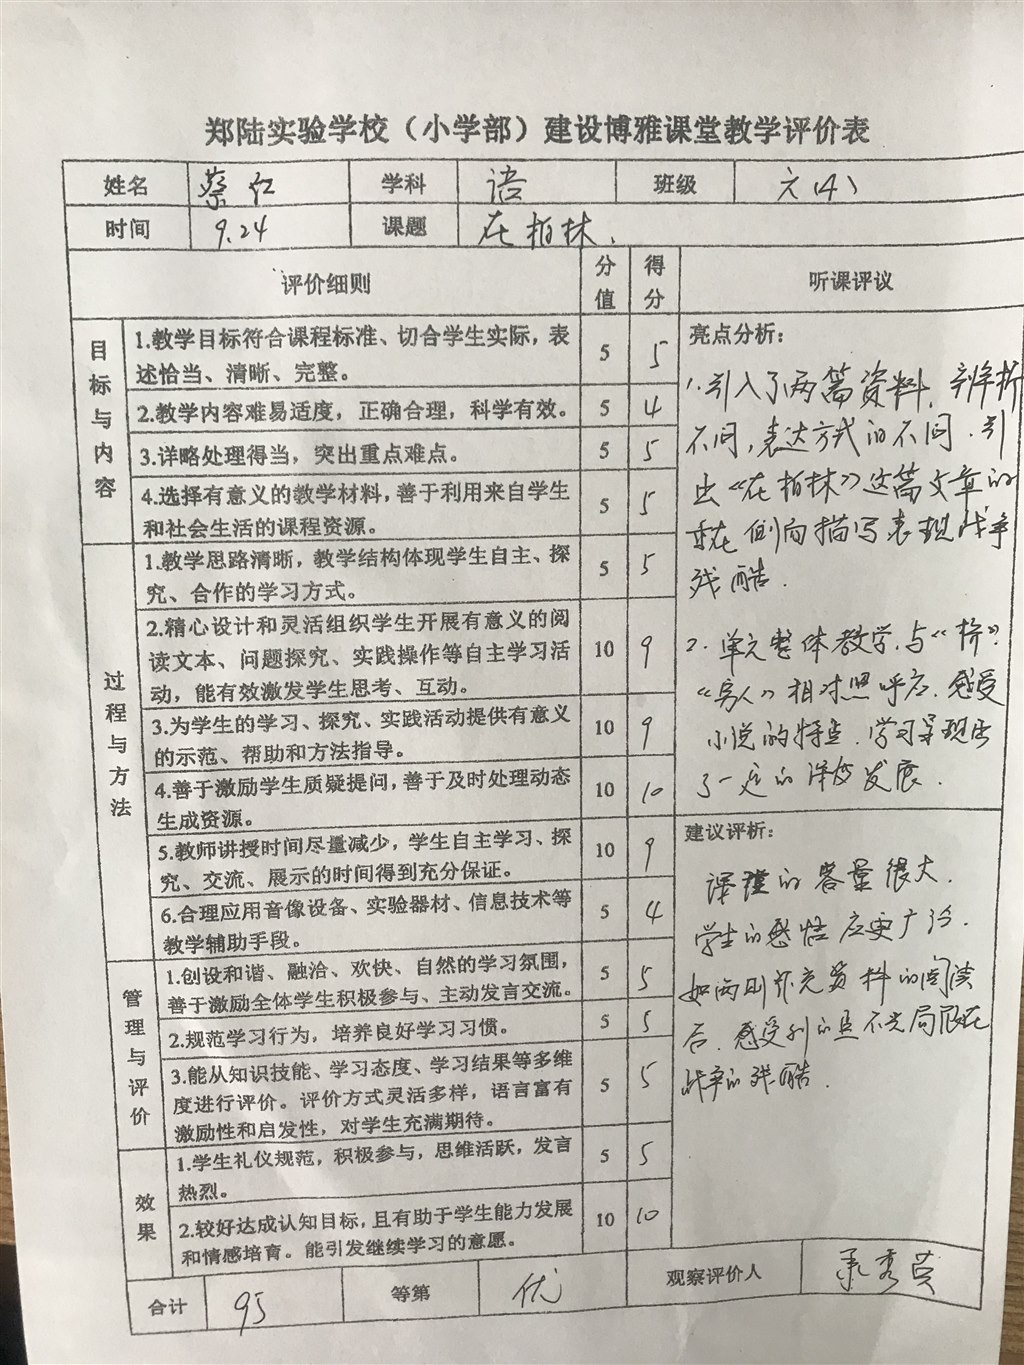 郑陆实验学校（小学部）建设博雅课堂教学评价表
姓名 蔡红 学科 语 班级 六(4)
时间 9.24 课题 在柏林.
评价细则 分值 得分 听课评议
目标与内容
1.教学目标符合课程标准、切合学生实际，表
述恰当、清晰、完整。 5 5
2.教学内容难易适度，正确合理，科学有效。 5 4
3.详略处理得当，突出重点难点。 5 5
4.选择有意义的教学材料，善于利用来自学生
和社会生活的课程资源。 5 5
过程与方法
1.教学思路清晰，教学结构体现学生自主、探
究、合作的学习方式。 5 5
2.精心设计和灵活组织学生开展有意义的阅
读文本、问题探究、实践操作等自主学习活
动，能有效激发学生思考、互动。 10 9
3.为学生的学习、探究、实践活动提供有意义
的示范、帮助和方法指导。 10 9
4.善于激励学生质疑提问，善于及时处理动态
生成资源。 10 10
5.教师讲授时间尽量减少，学生自主学习、探
究、交流、展示的时间得到充分保证。 10 9
6.合理应用音像设备、实验器材、信息技术等
教学辅助手段。 5 4
管理与评价
1.创设和谐、融洽、欢快、自然的学习氛围，
善于激励全体学生积极参与、主动发言交流。 5 5
2.规范学习行为，培养良好学习习惯。 5 5
3.能从知识技能、学习态度、学习结果等多维
度进行评价。评价方式灵活多样，语言富有
激励性和启发性，对学生充满期待。 5 5
效果
1.学生礼仪规范，积极参与，思维活跃，发言
热烈。 5 5
2.较好达成认知目标，且有助于学生能力发展
和情感培育。能引发继续学习的意愿。 10 10
亮点分析：
1.引入了两篇资料，辨析
不同，表达方式的不同.引
出《在柏林》这篇文章的
在侧面描写表现战争
残酷.
2.单元整体教学，与《桥》
《穷人》相对照呼应.感受
小说的特点.学习呈现出
了一定的深度发展.
建议评析：
课堂的容量很大.
学生的感悟应更广泛.
如两则补充资料的阅读
后，感受到的且不光局限在
战争的残酷.
合计 95 等第 优 观察评价人 承秀英